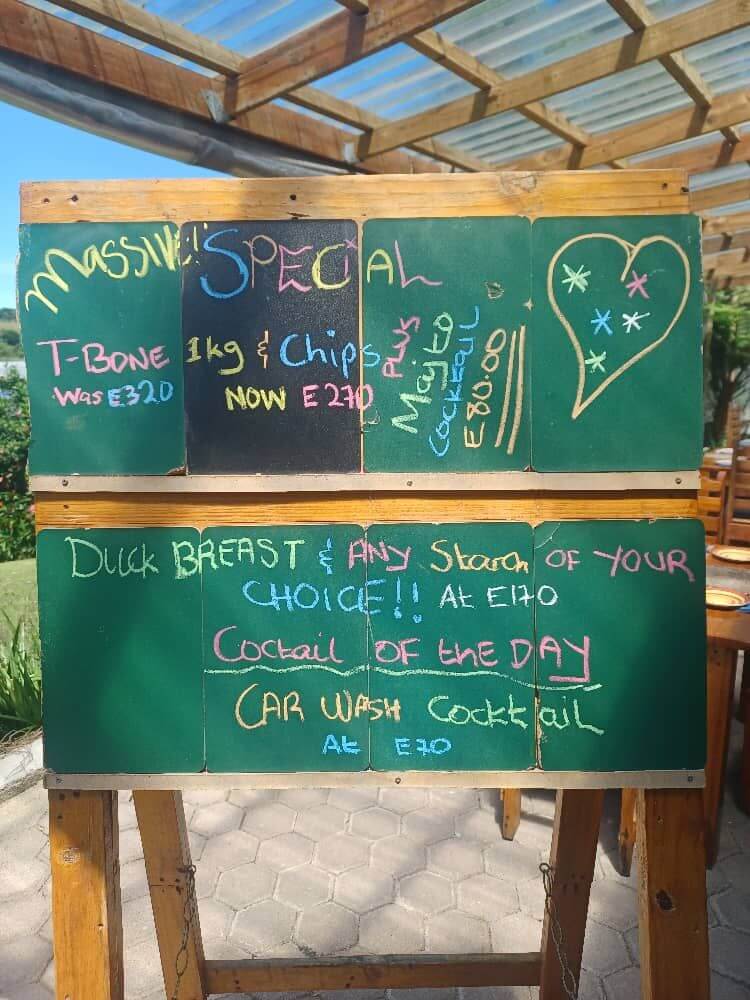 MASSIVE!! SPECiAL
T-BONE 1kg & Chips
Was E320 NOW E270
PLUS
Mojto
Cocktail
E80.00
Duck BREAST & ANY Starch OF YOUR
CHOICE!! At E170
Coctail OF thE DAY
CAR WASH Cocktail
At E70